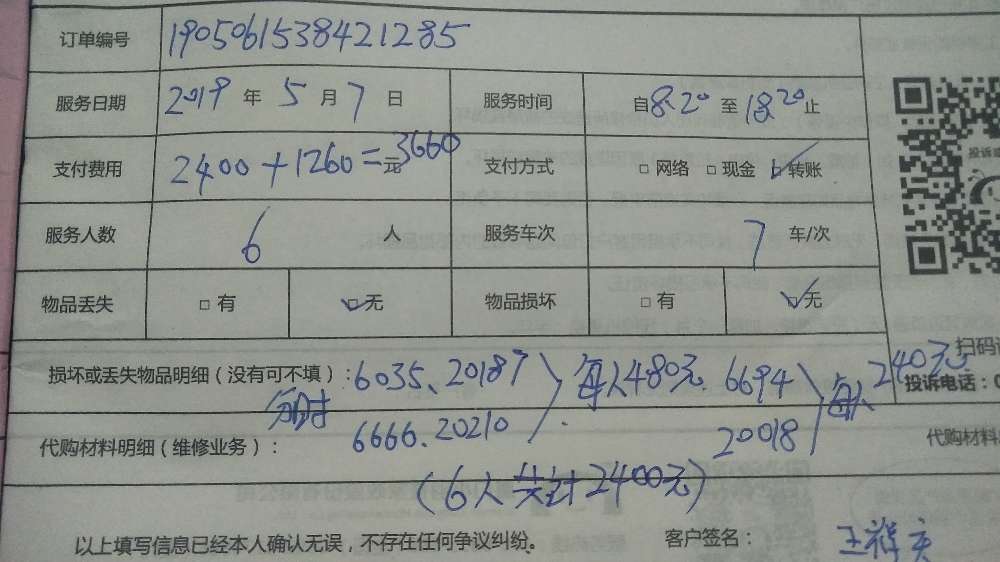 订单编号 1905061538421285
服务日期 2019 年 5 月 7 日 服务时间 自 8:20 至 18:20 止
支付费用 2400+1260=3660 元 支付方式 □ 网络 □ 现金 ☑ 转账
服务人数 6 人 服务车次 7 车/次
物品丢失 □ 有 ☑ 无 物品损坏 □ 有 ☑ 无
扫码
损坏或丢失物品明细（没有可不填）: 6035、20187 每人480元 6694 每人240元
投诉电话:
分时 6666、20210 20018
代购材料明细（维修业务）: 代购材料
(6人共计2400元)
以上填写信息已经本人确认无误，不存在任何争议纠纷。 客户签名: 王祥